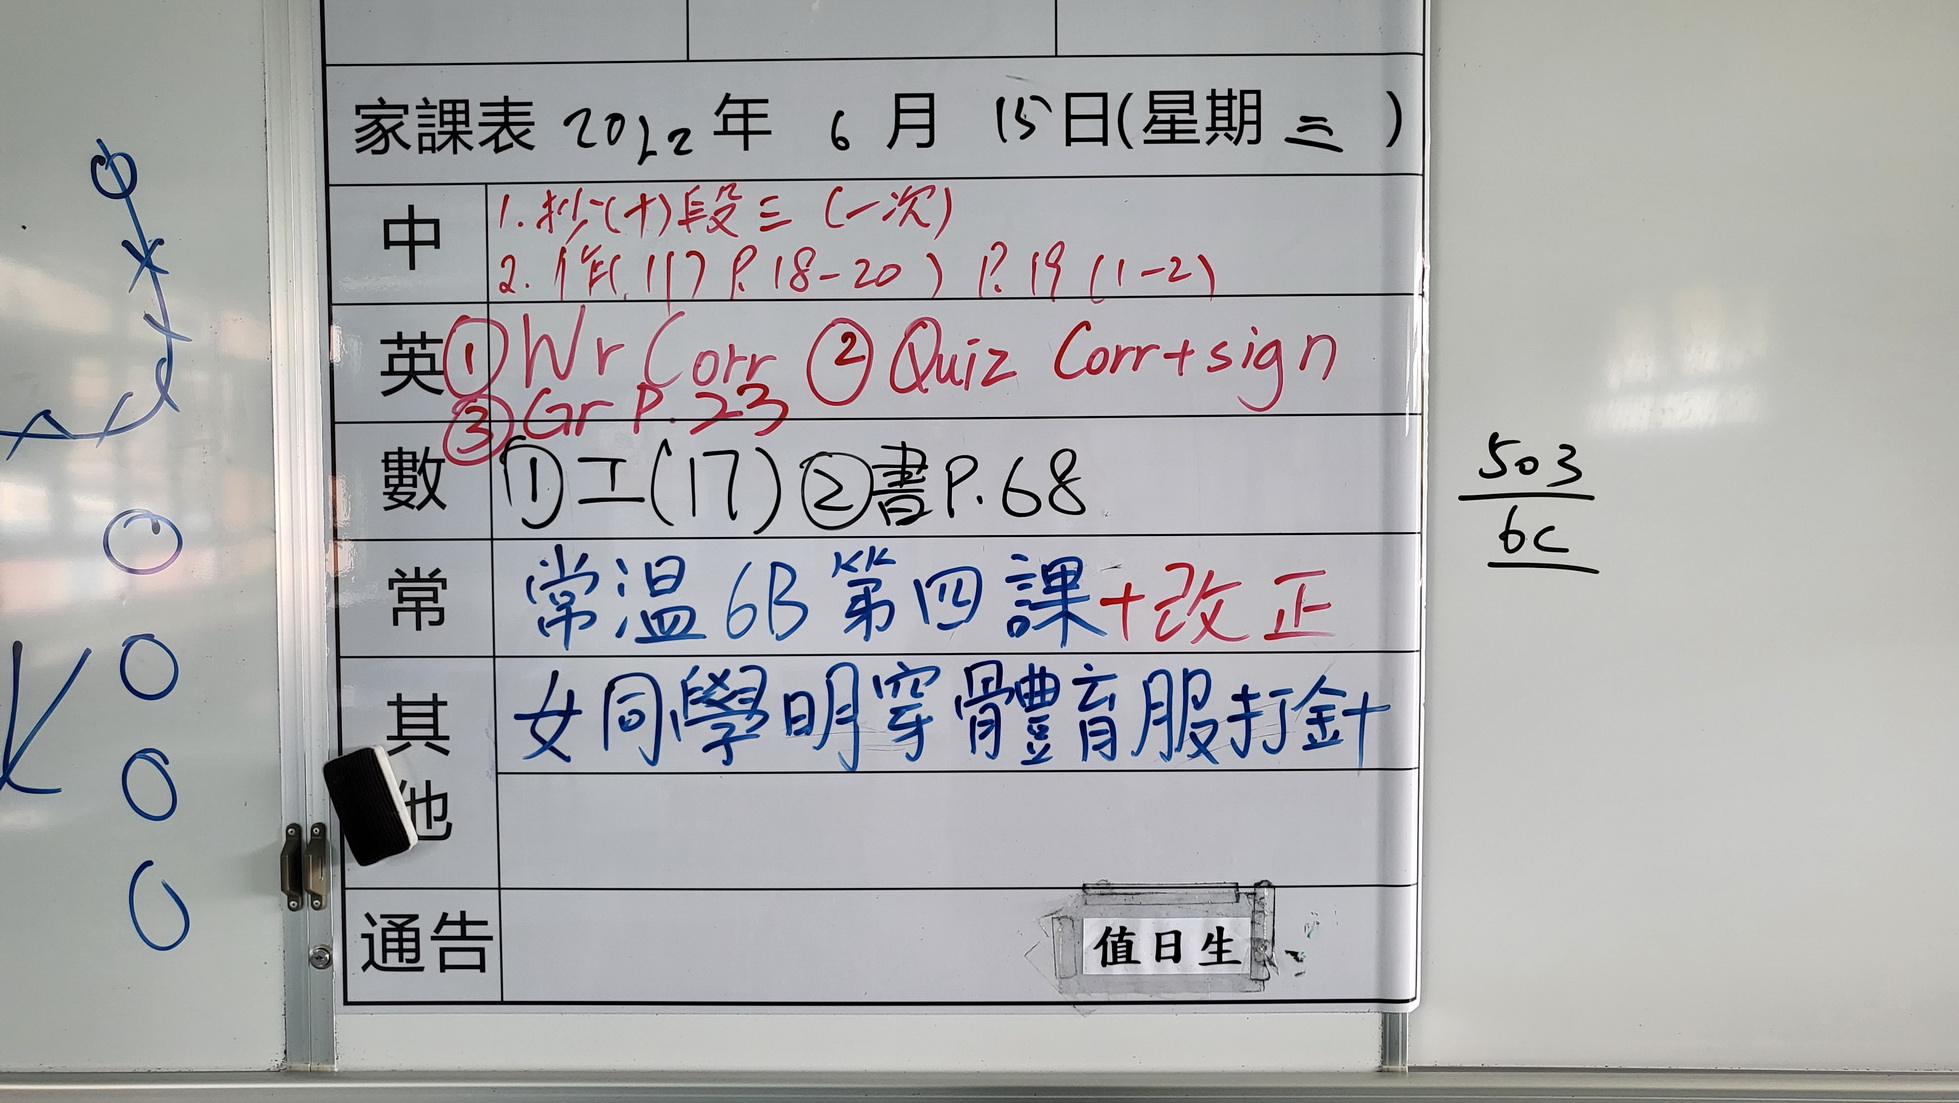 家課表 2022年 6月 15日(星期三)
中
1. 抄(十)段三 (一次)
2. 作(11) P.18-20) P.19 (1-2)
英
① Wr Corr ② Quiz Corr+sign
③ Gr P.23
數
① 工(17) ② 書P.68
常
常溫6B第四課+改正
其他
女同學明穿體育服打針
通告
值日生
503
6C